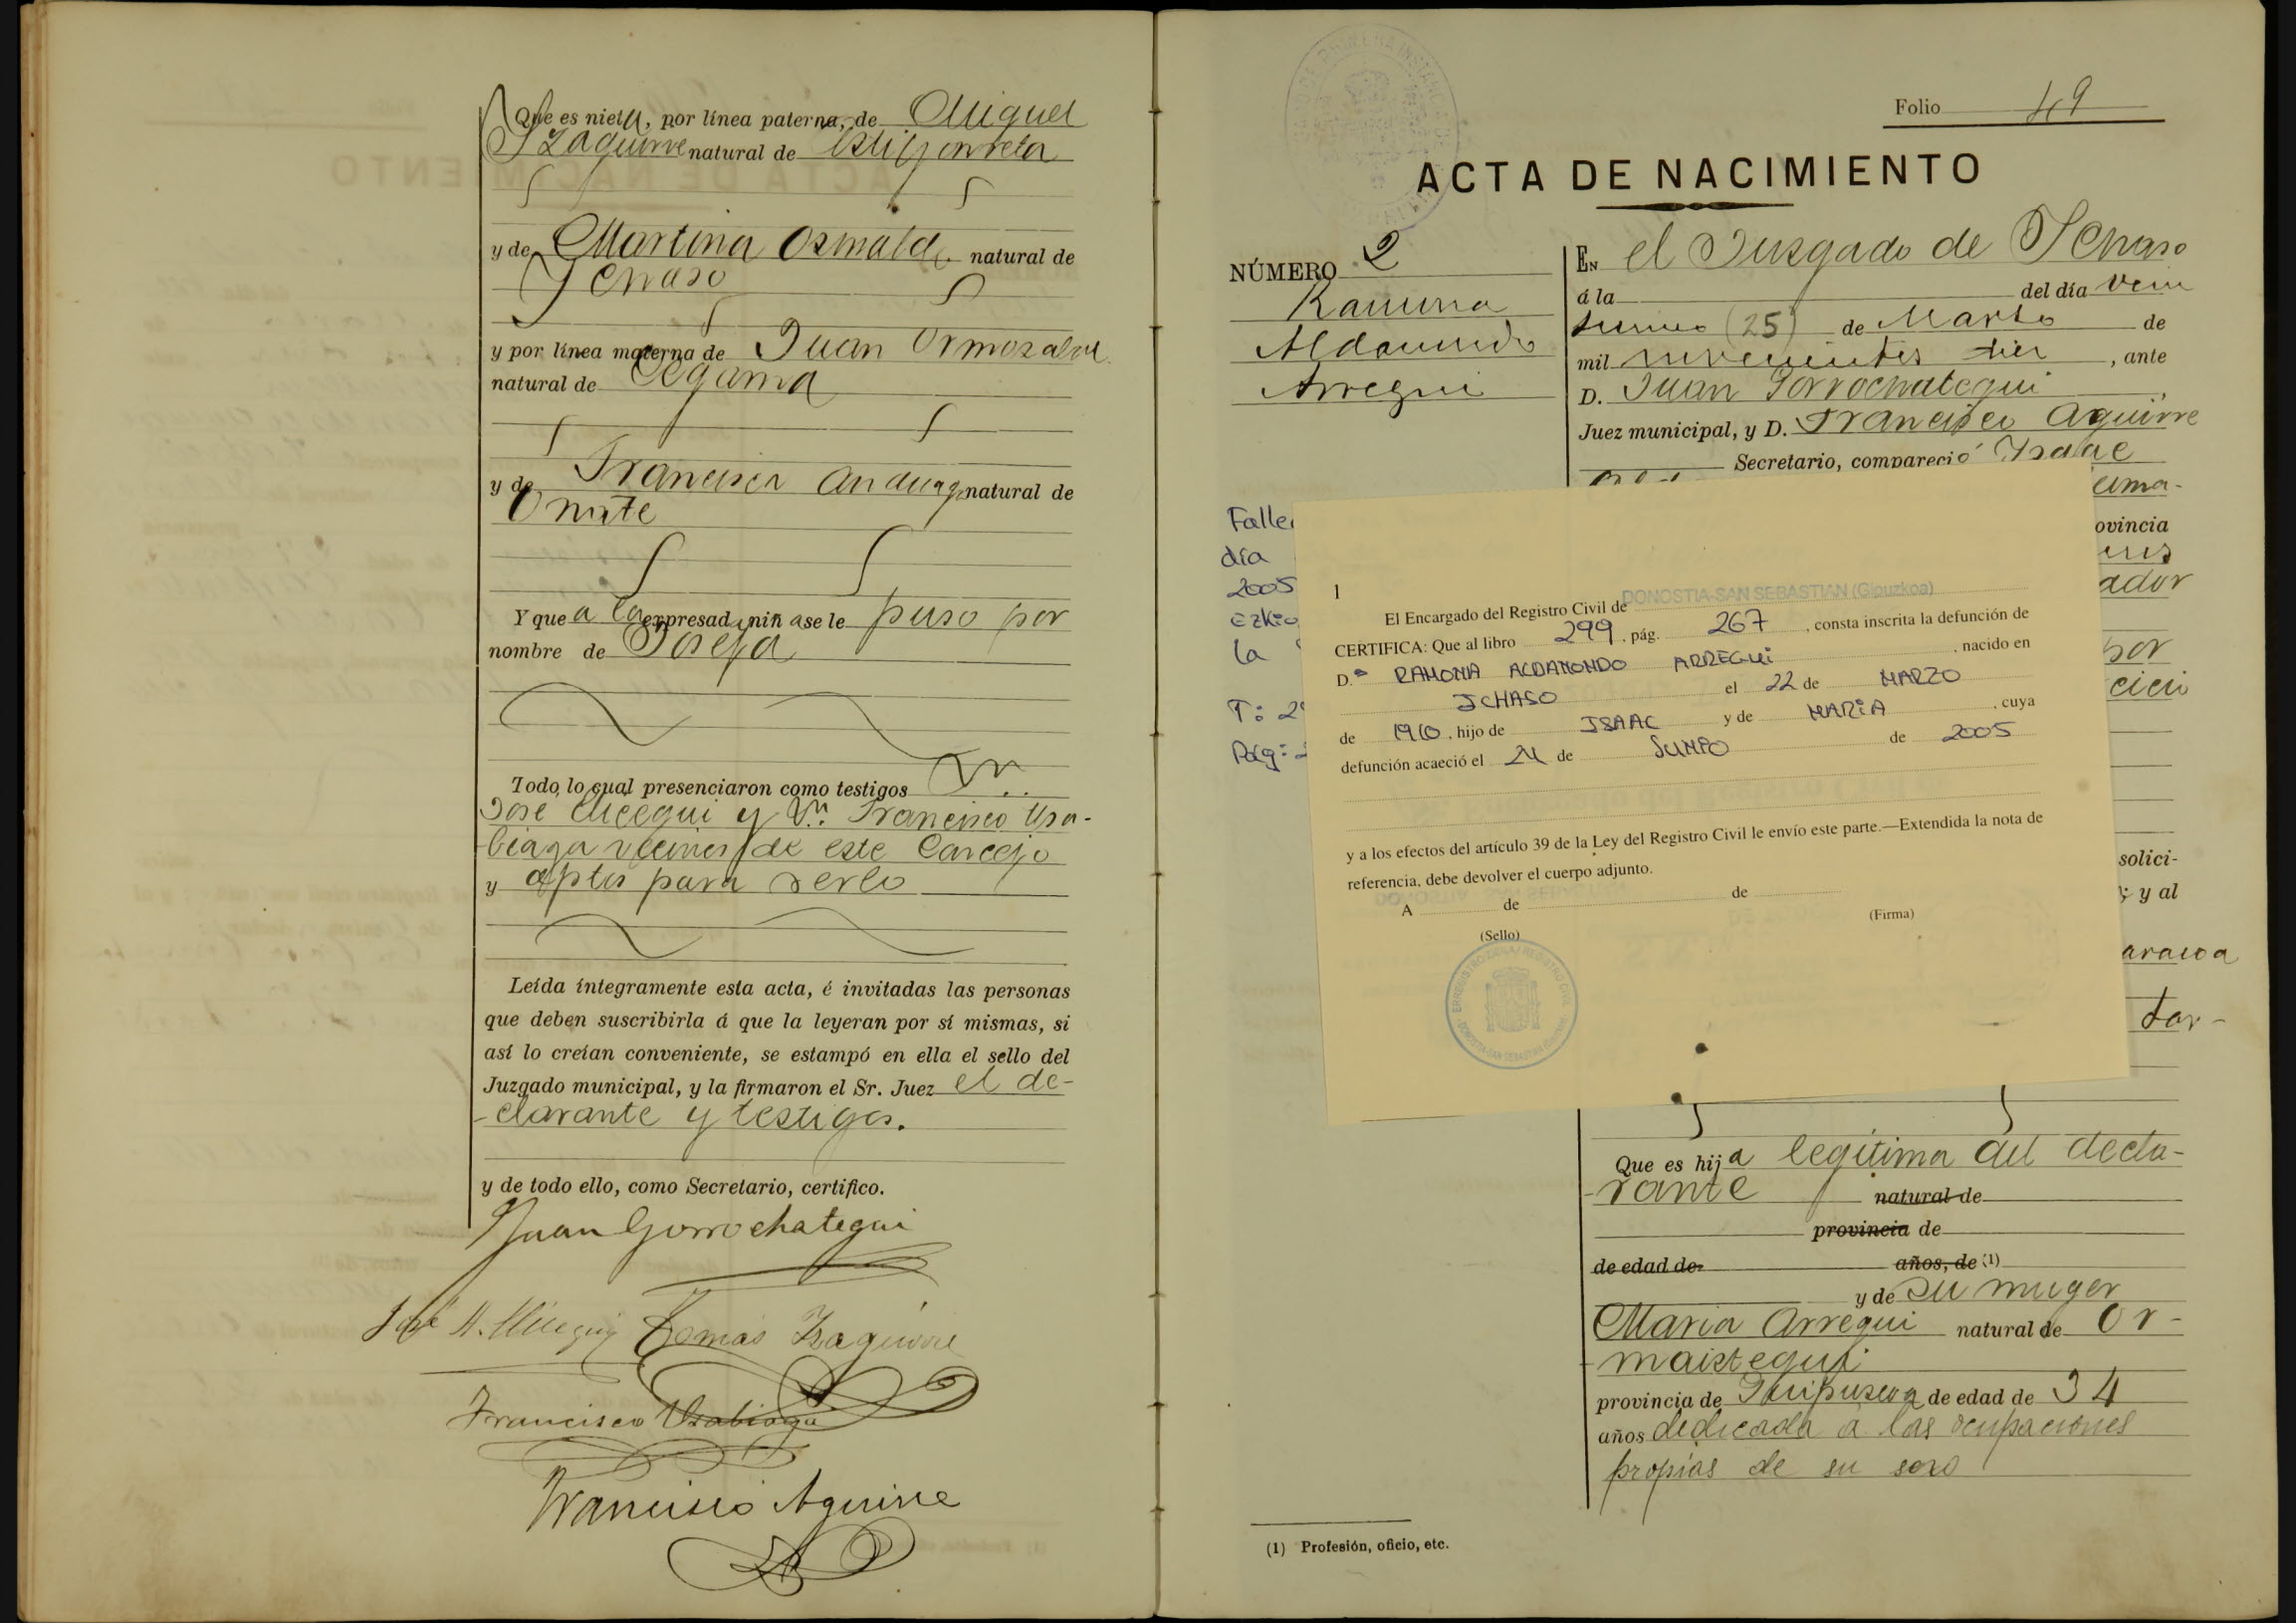 Que es nieta, por línea paterna, de Miguel
Yzaguirre natural de Astigarreta
y de Martina Osinalde natural de
Ychaso
y por línea materna de Juan Ormazabal
natural de Cegama
y de Francisca Anduaga natural de
Oñate
Y que a la expresada niña se le puso por
nombre de Josefa
Todo lo cual presenciaron como testigos Dn.
José Aucegui y Dn. Francisco Usa-
biaga vecinos de este Concejo
y aptos para serlo
Leída íntegramente esta acta, é invitadas las personas
que deben suscribirla á que la leyeran por sí mismas, si
así lo creían conveniente, se estampó en ella el sello del
Juzgado municipal, y la firmaron el Sr. Juez el de-
-clarante y testigos.
y de todo ello, como Secretario, certifico.
Juan Gorrochategui
Tomas Yzaguirre
Francisco Usabiaga
Francisco Aguirre
Folio 49
ACTA DE NACIMIENTO
NÚMERO 2
Ramona
Aldamondo
Arregui
EN el Juzgado de Ychaso
á la del día vein
ticinco (25) de Marzo de
mil novecientos diez, ante
D. Juan Gorrochategui,
Juez municipal, y D. Francisco Aguirre
Secretario, compareció Ysaac
cima-
ovincia
ador
por
solici-
; y al
tar-
Falle
día
2005
Ezkio
la
T: 29
Pág: 2
1
El Encargado del Registro Civil de DONOSTIA-SAN SEBASTIAN (Gipuzkoa)
CERTIFICA: Que al libro 299, pág. 267, consta inscrita la defunción de
D.ª RAMONA ALDAMONDO ARREGUI, nacido en
ICHASO el 22 de MARZO
de 1910, hijo de ISAAC y de MARIA, cuya
defunción acaeció el 24 de JUNIO de 2005
y a los efectos del artículo 39 de la Ley del Registro Civil le envío este parte.—Extendida la nota de
referencia, debe devolver el cuerpo adjunto.
A de de
(Sello) (Firma)
Que es hija legítima del decla-
-rante natural de
provincia de
de edad de años, de (1)
y de su muger
Maria Arregui natural de Or-
-maiztegui
provincia de Guipuzcoa de edad de 34
años dedicada a las ocupaciones
propias de su sexo
(1) Profesión, oficio, etc.